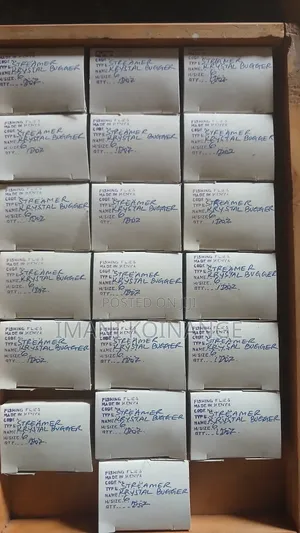 CODE
TYPE STREAMER
NAME KRYSTAL BUGGER
H/SIZE 6
QTY....1DOZ
CODE
TYPE STREAMER
NAME KRYSTAL BUGGER
H/SIZE 6
QTY....1DOZ
TYPE STREAMER
NAME KRYSTAL BUGGER
H/SIZE 6
QTY....1DOZ
CODE
TYPE STREAMER
NAME KRYSTAL BUGGER
H/SIZE 6
QTY....1DOZ
CODE
TYPE STREAMER
NAME KRYSTAL BUGGER
H/SIZE 6
QTY....1DOZ
CODE
TYPE STREAMER
NAME KRYSTAL BUGGER
H/SIZE 6
QTY....1DOZ
FISHING FLIES
MADE IN KENYA
CODE
TYPE STREAMER
NAME KRYSTAL BUGGER
H/SIZE 6
QTY....1DOZ
FISHING FLIES
MADE IN KENYA
CODE
TYPE STREAMER
NAME KRYSTAL BUGGER
H/SIZE 6
QTY....1DOZ
FISHING FLIES
MADE IN KENYA
CODE
TYPE STREAMER
NAME KRYSTAL BUGGER
H/SIZE 6
QTY....1DOZ
FISHING FLIES
MADE IN KENYA
CODE
TYPE STREAMER
NAME KRYSTAL BUGGER
H/SIZE 6
QTY....1DOZ
FISHING FLIES
MADE IN KENYA
CODE
TYPE STREAMER
NAME KRYSTAL BUGGER
H/SIZE 6
QTY....1DOZ
FISHING FLIES
MADE IN KENYA
CODE
TYPE STREAMER
NAME KRYSTAL BUGGER
H/SIZE 6
QTY....1DOZ
POSTED ON
KOINANGE
FISHING FLIES
MADE IN KENYA
CODE
TYPE STREAMER
NAME KRYSTAL BUGGER
H/SIZE 6
QTY....1DOZ
CODE
TYPE STREAMER
NAME KRYSTAL BUGGER
H/SIZE 6
QTY....1DOZ
CODE
TYPE STREAMER
NAME KRYSTAL BUGGER
H/SIZE 6
QTY....1DOZ
FISHING FLIES
MADE IN KENYA
CODE
TYPE STREAMER
NAME KRYSTAL BUGGER
H/SIZE 6
QTY....1DOZ
FISHING FLIES
MADE IN KENYA
CODE
TYPE STREAMER
NAME KRYSTAL BUGGER
H/SIZE 6
QTY....1DOZ
FISHING FLIES
MADE IN KENYA
CODE
TYPE STREAMER
NAME KRYSTAL BUGGER
H/SIZE 6
QTY....1DOZ
FISHING FLIES
MADE IN KENYA
CODE
TYPE STREAMER
NAME KRYSTAL BUGGER
H/SIZE 6
QTY....1DOZ